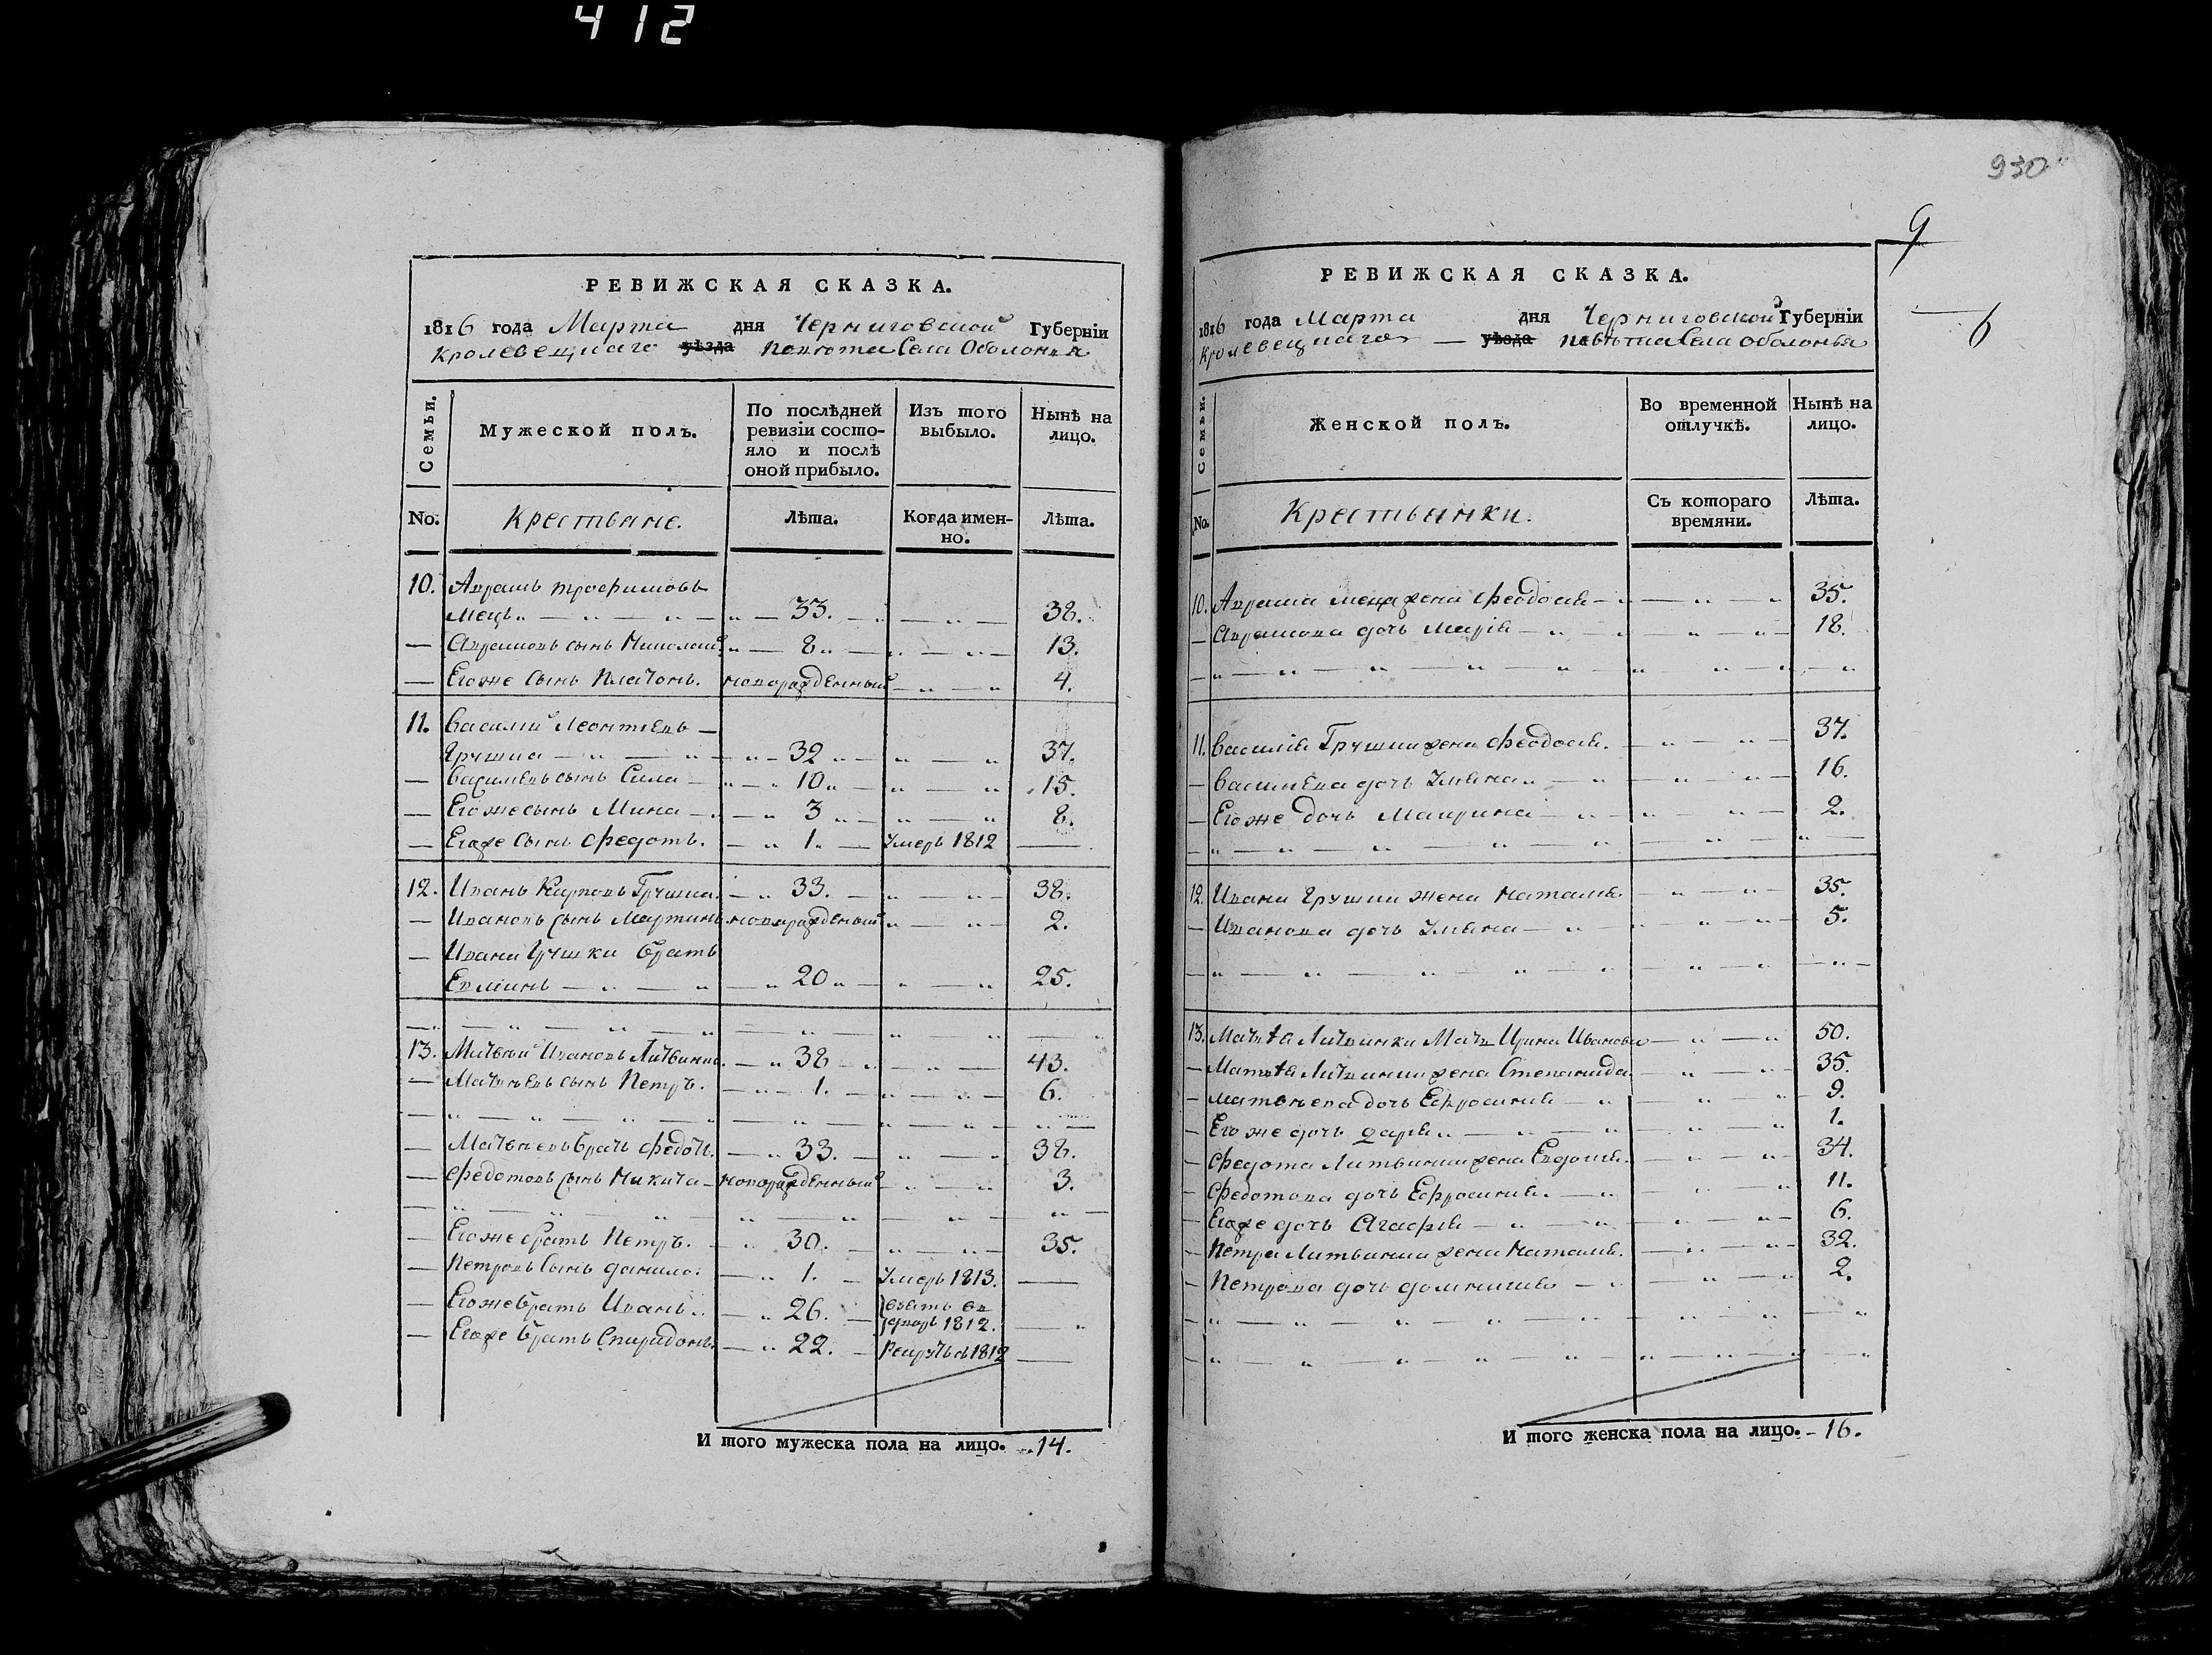 412
РЕВИЖСКАЯ СКАЗКА.
1816 года Марта дня Черниговской Губерніи
Кролевецкаго уѣзда повѣта Села Оболонья
Семьи.
Мужеской полъ.
По послѣдней ревизіи состо-
яло и послѣ
оной прибыло.
Изъ того
выбыло.
Нынѣ на
лицо.
No.
Крестьяне.
Лѣта.
Когда имен-
но.
Лѣта.
10. Аврамъ Трофимовъ
Мецъ 33. 38.
Аврамовъ сынъ Николай 8 13.
Егоже сынъ Платонъ. новорожденный 4.
11. Василий Леонтіевъ
Грушка 32 37.
Василіевъ сынъ Сила 10 15.
Егоже сынъ Мина 3 8.
Егоже сынъ Федотъ. 1. Умеръ 1812
12. Иванъ Карповъ Грушка. 33. 38.
Ивановъ сынъ Мартинъ новорожденный 2.
Ивана Грушки братъ
20 25.
13. Матвѣй Ивановъ Литвинка. 38 43.
Матвѣевъ сынъ Петръ. 1. 6.
Матвѣевъ братъ Федотъ. 33. 38.
Федотовъ сынъ Никита новорожденный 3.
Егоже братъ Петръ. 30. 35.
Петровъ сынъ Данило. 1. Умеръ 1813.
Егоже братъ Иванъ. 26. взятъ въ
1812.
Егоже братъ Спиридонъ. 22. 1812
И того мужеска пола на лицо. 14.
930
9
6
РЕВИЖСКАЯ СКАЗКА.
1816 года Марта дня Черниговской Губерніи
Кролевецкаго уѣзда повѣта Села Оболонья
Семьи.
Женской полъ.
Во временной
отлучкѣ.
Нынѣ на
лицо.
No.
Крестьянки.
Съ котораго
времяни.
Лѣта.
10. Аврама Меца жена Феодосія 35.
Аврамова дочь Марія 18.
11. Василія Грушки жена Феодосія. 37.
Василіева дочь Уляна 16.
Егоже дочь Маврина 2.
12. Ивана Грушки жена Наталія 35.
Иванова дочь Уляна 5.
13. Матвѣя Литвинки Мать Ирина Иванова 50.
Матвѣя Литвинки жена Степанида. 35.
Матвѣева дочь Ефросинія 9.
Егоже дочь Дарія 1.
Федота Литвинки жена Евдокія. 34.
Федотова дочь Ефросинія. 11.
Егоже дочь Агафія 6.
Петра Литвинки жена Наталія. 32.
Петрова дочь Домникія 2.
И того женска пола на лицо. 16.